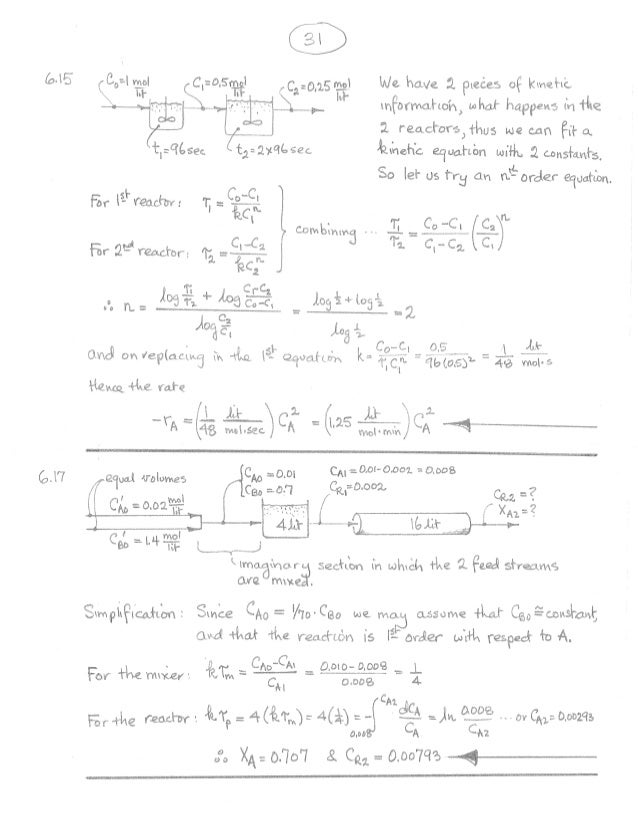 31
6.15
C₀=1 mol/lit
C₁=0,5 mol/lit
C₂=0,25 mol/lit
t₁=96sec
t₂=2×96sec
We have 2 pieces of kinetic
information, what happens in the
2 reactors, thus we can fit a
kinetic equation with 2 constants.
So let us try an nth order equation.
For 1st reactor: τ₁ = (C₀-C₁)/(kC₁ⁿ)
For 2nd reactor: τ₂ = (C₁-C₂)/(kC₂ⁿ)
combining ... τ₁/τ₂ = (C₀-C₁)/(C₁-C₂) (C₂/C₁)ⁿ
∴ n = (log τ₁/τ₂ + log (C₁-C₂)/(C₀-C₁))/(log C₂/C₁) = (log ½ + log ½)/(log ½) = 2
and on replacing in the 1st equation k = (C₀-C₁)/(τ₁C₁ⁿ) = 0,5/(96(0,5)²) = 1/48 lit/mol·s
Hence the rate
-rA = (1/48 lit/mol.sec) CA² = (1,25 lit/mol·min) CA²
6.17
equal volumes
C'A0 = 0.02 mol/lit
C'B0 = 1.4 mol/lit
{CA0 = 0.01
CB0 = 0.7
4 lit
CA1 = 0.01-0.002 = 0.008
CR1 = 0.002
16 lit
CR2 = ?
XA2 = ?
imaginary section in which the 2 feed streams
are mixed.
Simplification: Since CA0 = 1/70 · CB0 we may assume that CB0 ≅ constant,
and that the reaction is 1st order with respect to A.
For the mixer: kτm = (CA0-CA1)/CA1 = (0.010-0.008)/0.008 = 1/4
For the reactor: kτp = 4(kτm) = 4(¼) = -∫0,008^CA2 dCA/CA = ln 0.008/CA2 ... or CA2 = 0,00293
∴ XA = 0.707 & CR2 = 0.00793